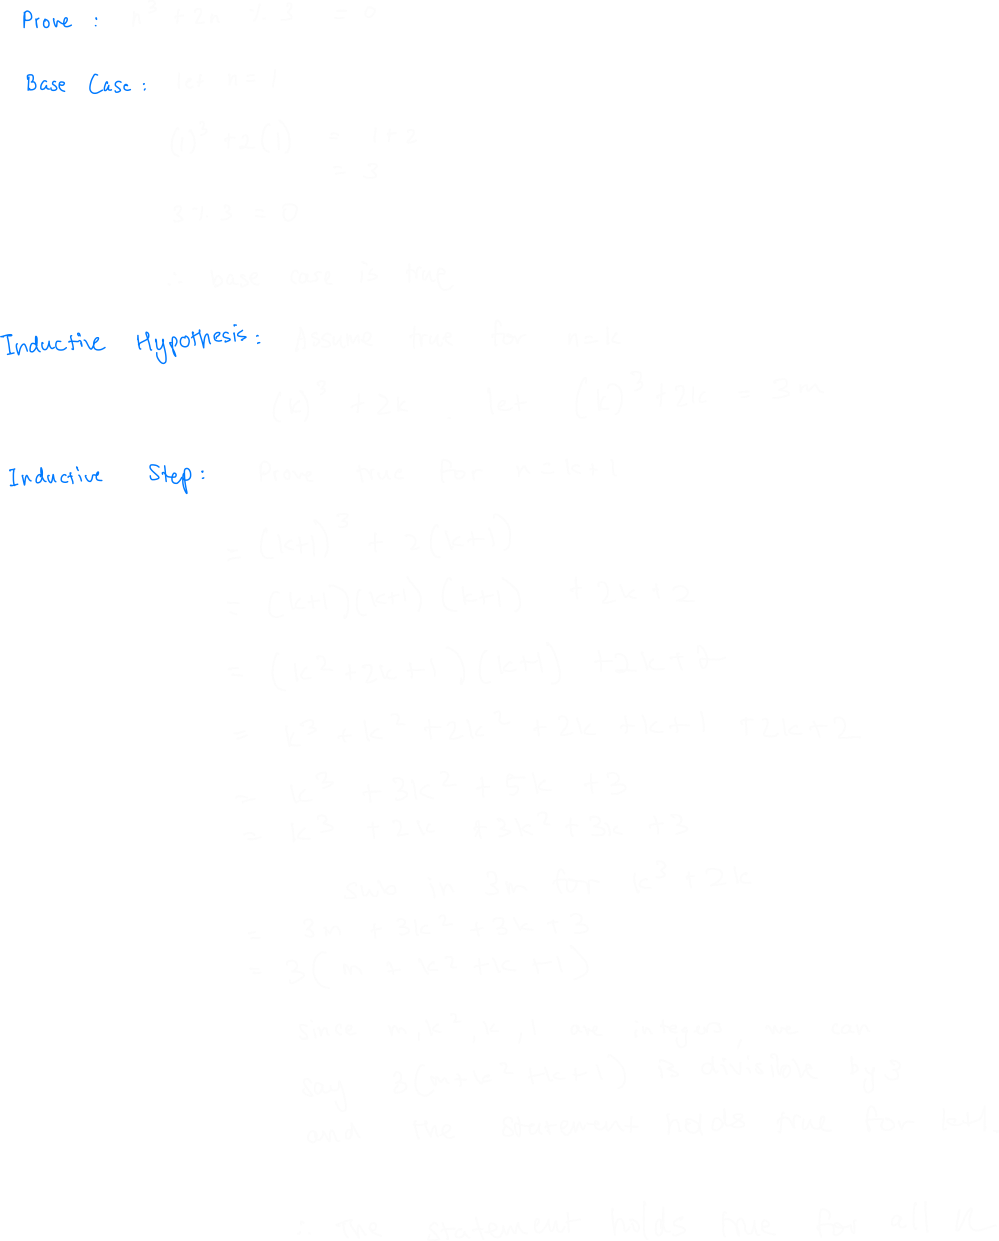 Prove : n³ + 2n % 3 = 0
Base Case : let n = 1
(1)³ + 2(1) = 1 + 2
= 3
3 % 3 = 0
∴ base case is true
Inductive Hypothesis : Assume true for n=k
(k)³ + 2k let (k)³ + 2k = 3m
Inductive Step : Prove true for n = k+1
= (k+1)³ + 2(k+1)
= (k+1)(k+1)(k+1) + 2k + 2
= (k²+2k+1)(k+1) + 2k + 2
= k³ + k² + 2k² + 2k + k + 1 + 2k + 2
= k³ + 3k² + 5k + 3
= k³ + 2k + 3k² + 3k + 3
sub in 3m for k³ + 2k
= 3m + 3k² + 3k + 3
= 3(m + k² + k + 1)
since m, k², k, 1 are integers, we can
say 3(m + k² + k + 1) is divisible by 3
and the statement holds true for k+1.
∴ The statement holds true for all